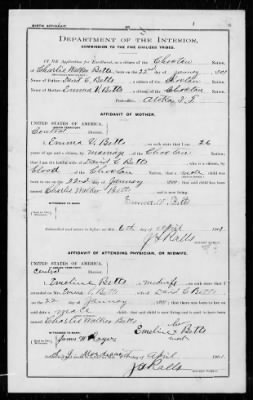 BIRTH AFFIDAVIT.
DEPARTMENT OF THE INTERIOR,
COMMISSION TO THE FIVE CIVILIZED TRIBES.
IN RE Application for Enrollment, as a citizen of the Choctaw Nation,
of Charlie Walker Betts, born on the 22nd day of January, 190
Name of Father: David C. Betts a citizen of the Choctaw Nation.
Name of Mother: Emma V. Betts a citizen of the Choctaw Nation.
Postoffice, Atoka I.T.
AFFIDAVIT OF MOTHER.
UNITED STATES OF AMERICA,
INDIAN TERRITORY
Central
I, Emma V. Betts, on oath state that I am 26
years of age and a citizen, by marriage, of the Choctaw Nation,
that I am the lawful wife of David C. Betts, who is a citizen, by
blood of the Choctaw Nation; that a male child was
born to me on 22nd day of January, 190 that said child has been
named Charles Walker Betts
Emma V. Betts
Subscribed and sworn to before me this 6th day of April 190
J G Ralls
AFFIDAVIT OF ATTENDING PHYSICIAN, OR MIDWIFE.
UNITED STATES OF AMERICA,
INDIAN TERRITORY
Central
I, Emeline Betts, a midwife, on oath state that I
attended on Mrs. Emma V. Betts, wife of David C Betts on the
22 day of January, 190 that there was born to her on
said date a male child; that said child
is said to have been named Charlie Walker Betts
Emeline X Betts
her
mark
James W Rogers
day of April 190
J G Ralls